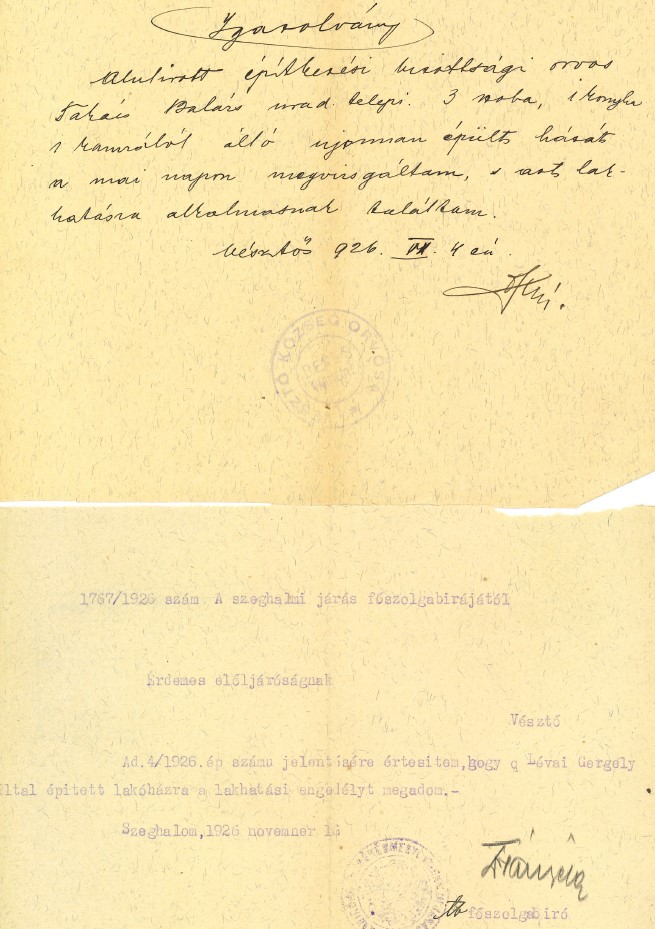 Igazolvány
Alulirott építkezési bizottsági orvos
Takács Balázs urad. telepi. 3 szoba, 1 konyha
s kamrából álló ujonnan épült házát
a mai napon megvizsgáltam, s azt lak-
hatásra alkalmasnak találtam.
Vésztő 926. 4 én.
SZTŐ KÖZSÉG ORVOSA
1767/1926 szám A szeghalmi járás főszolgabirájától
Érdemes elöljáróságnak
Vésztő
Ad.4/1926.ép számu jelentésére értesitem,hogy q Lévai Gergely
által épitett lakóházra a lakhatási engedélyt megadom.-
Szeghalom,1926 novemner 16
tb főszolgabiró